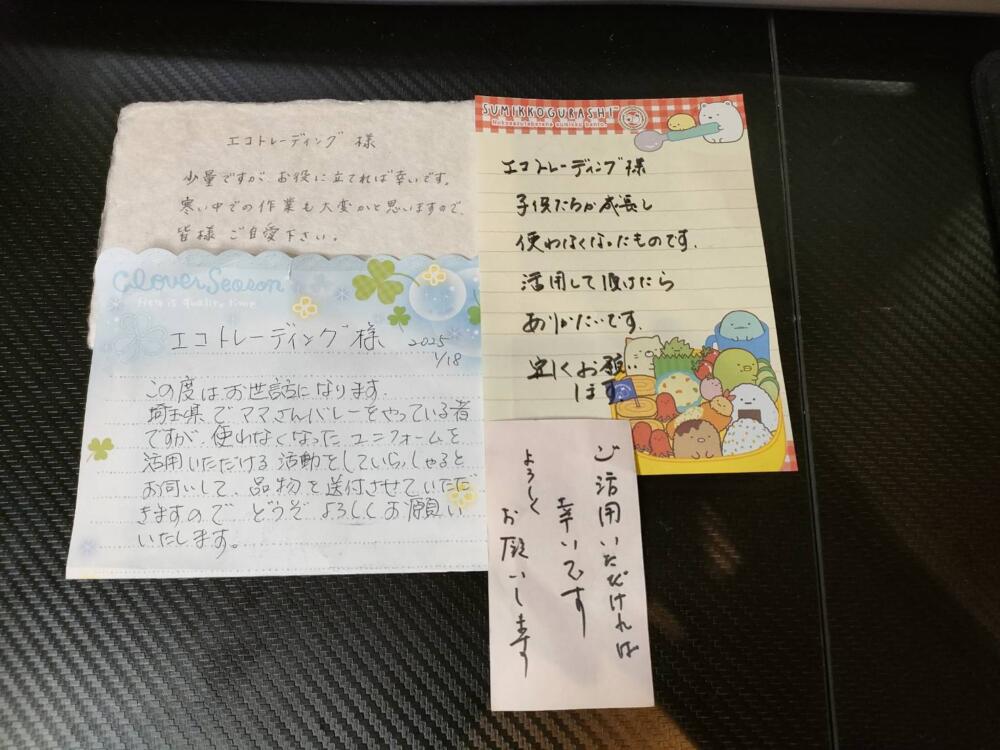 エコトレーディング 様
少量ですが、お役に立てれば幸いです。
寒い中での作業も大変かと思いますので、
皆様 ご自愛下さい。
Clover Season
エコトレーディング様 2025
1/18
この度はお世話になります。
埼玉県でママさんバレーをやっている者
ですが、使わなくなったユニフォームを
活用いただける活動をしていらっしゃると
お伺いして、品物を送付させていただ
きますので どうぞ よろしくお願い
いたします。
SUMIKKOGURASHI
エコトレーディング様
子供たちが成長し
使わなくなったものです.
活用して頂けたら
ありがたいです.
宜しくお願い
します
ご活用いただければ
幸いです
よろしく
お願いします